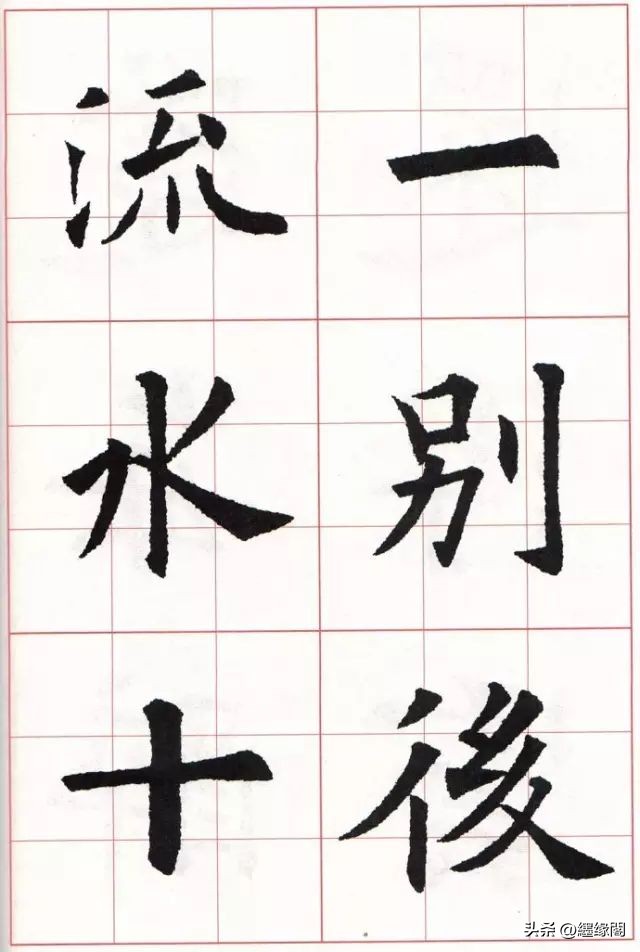 一别後
流水十
头条 @纒缘閣